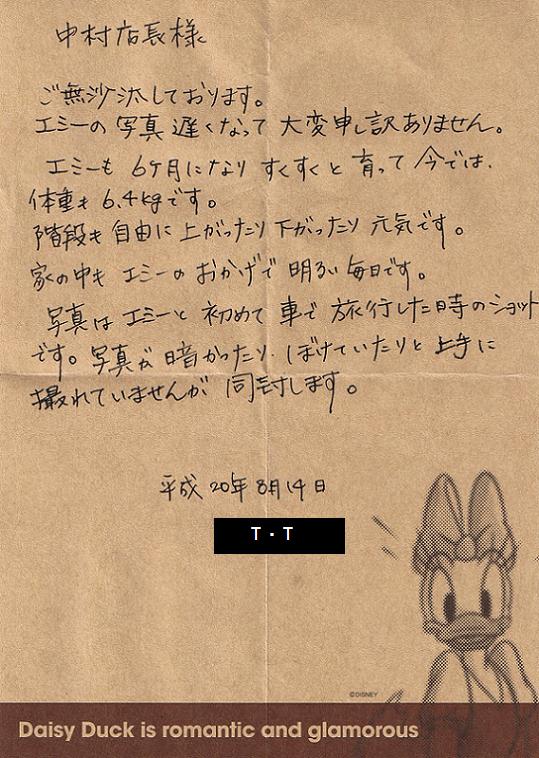 中村店長様
ご無沙汰しております。
エミーの写真遅くなって大変申し訳ありません。
エミーも6ケ月になりすくすくと育って今では、
体重も6.4kgです。
階段も自由に上がったり下がったり元気です。
家の中もエミーのおかげで明るい毎日です。
写真はエミーと初めて車で旅行した時のショット
です。写真が暗かったり、ぼけていたりと上手に
撮れていませんが同封します。
平成20年8月14日
T・T
©DISNEY
Daisy Duck is romantic and glamorous